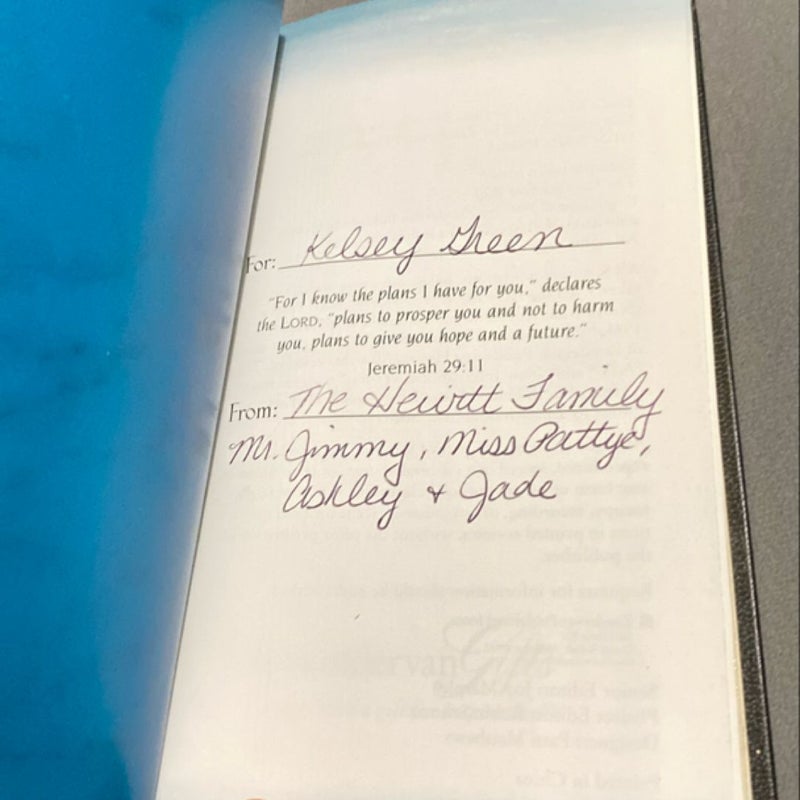 For: Kelsey Green
"For I know the plans I have for you," declares
the LORD, "plans to prosper you and not to harm
you, plans to give you hope and a future."
Jeremiah 29:11
From: The Hewitt Family
Mr. Jimmy, Miss Pattye,
Ashley + Jade